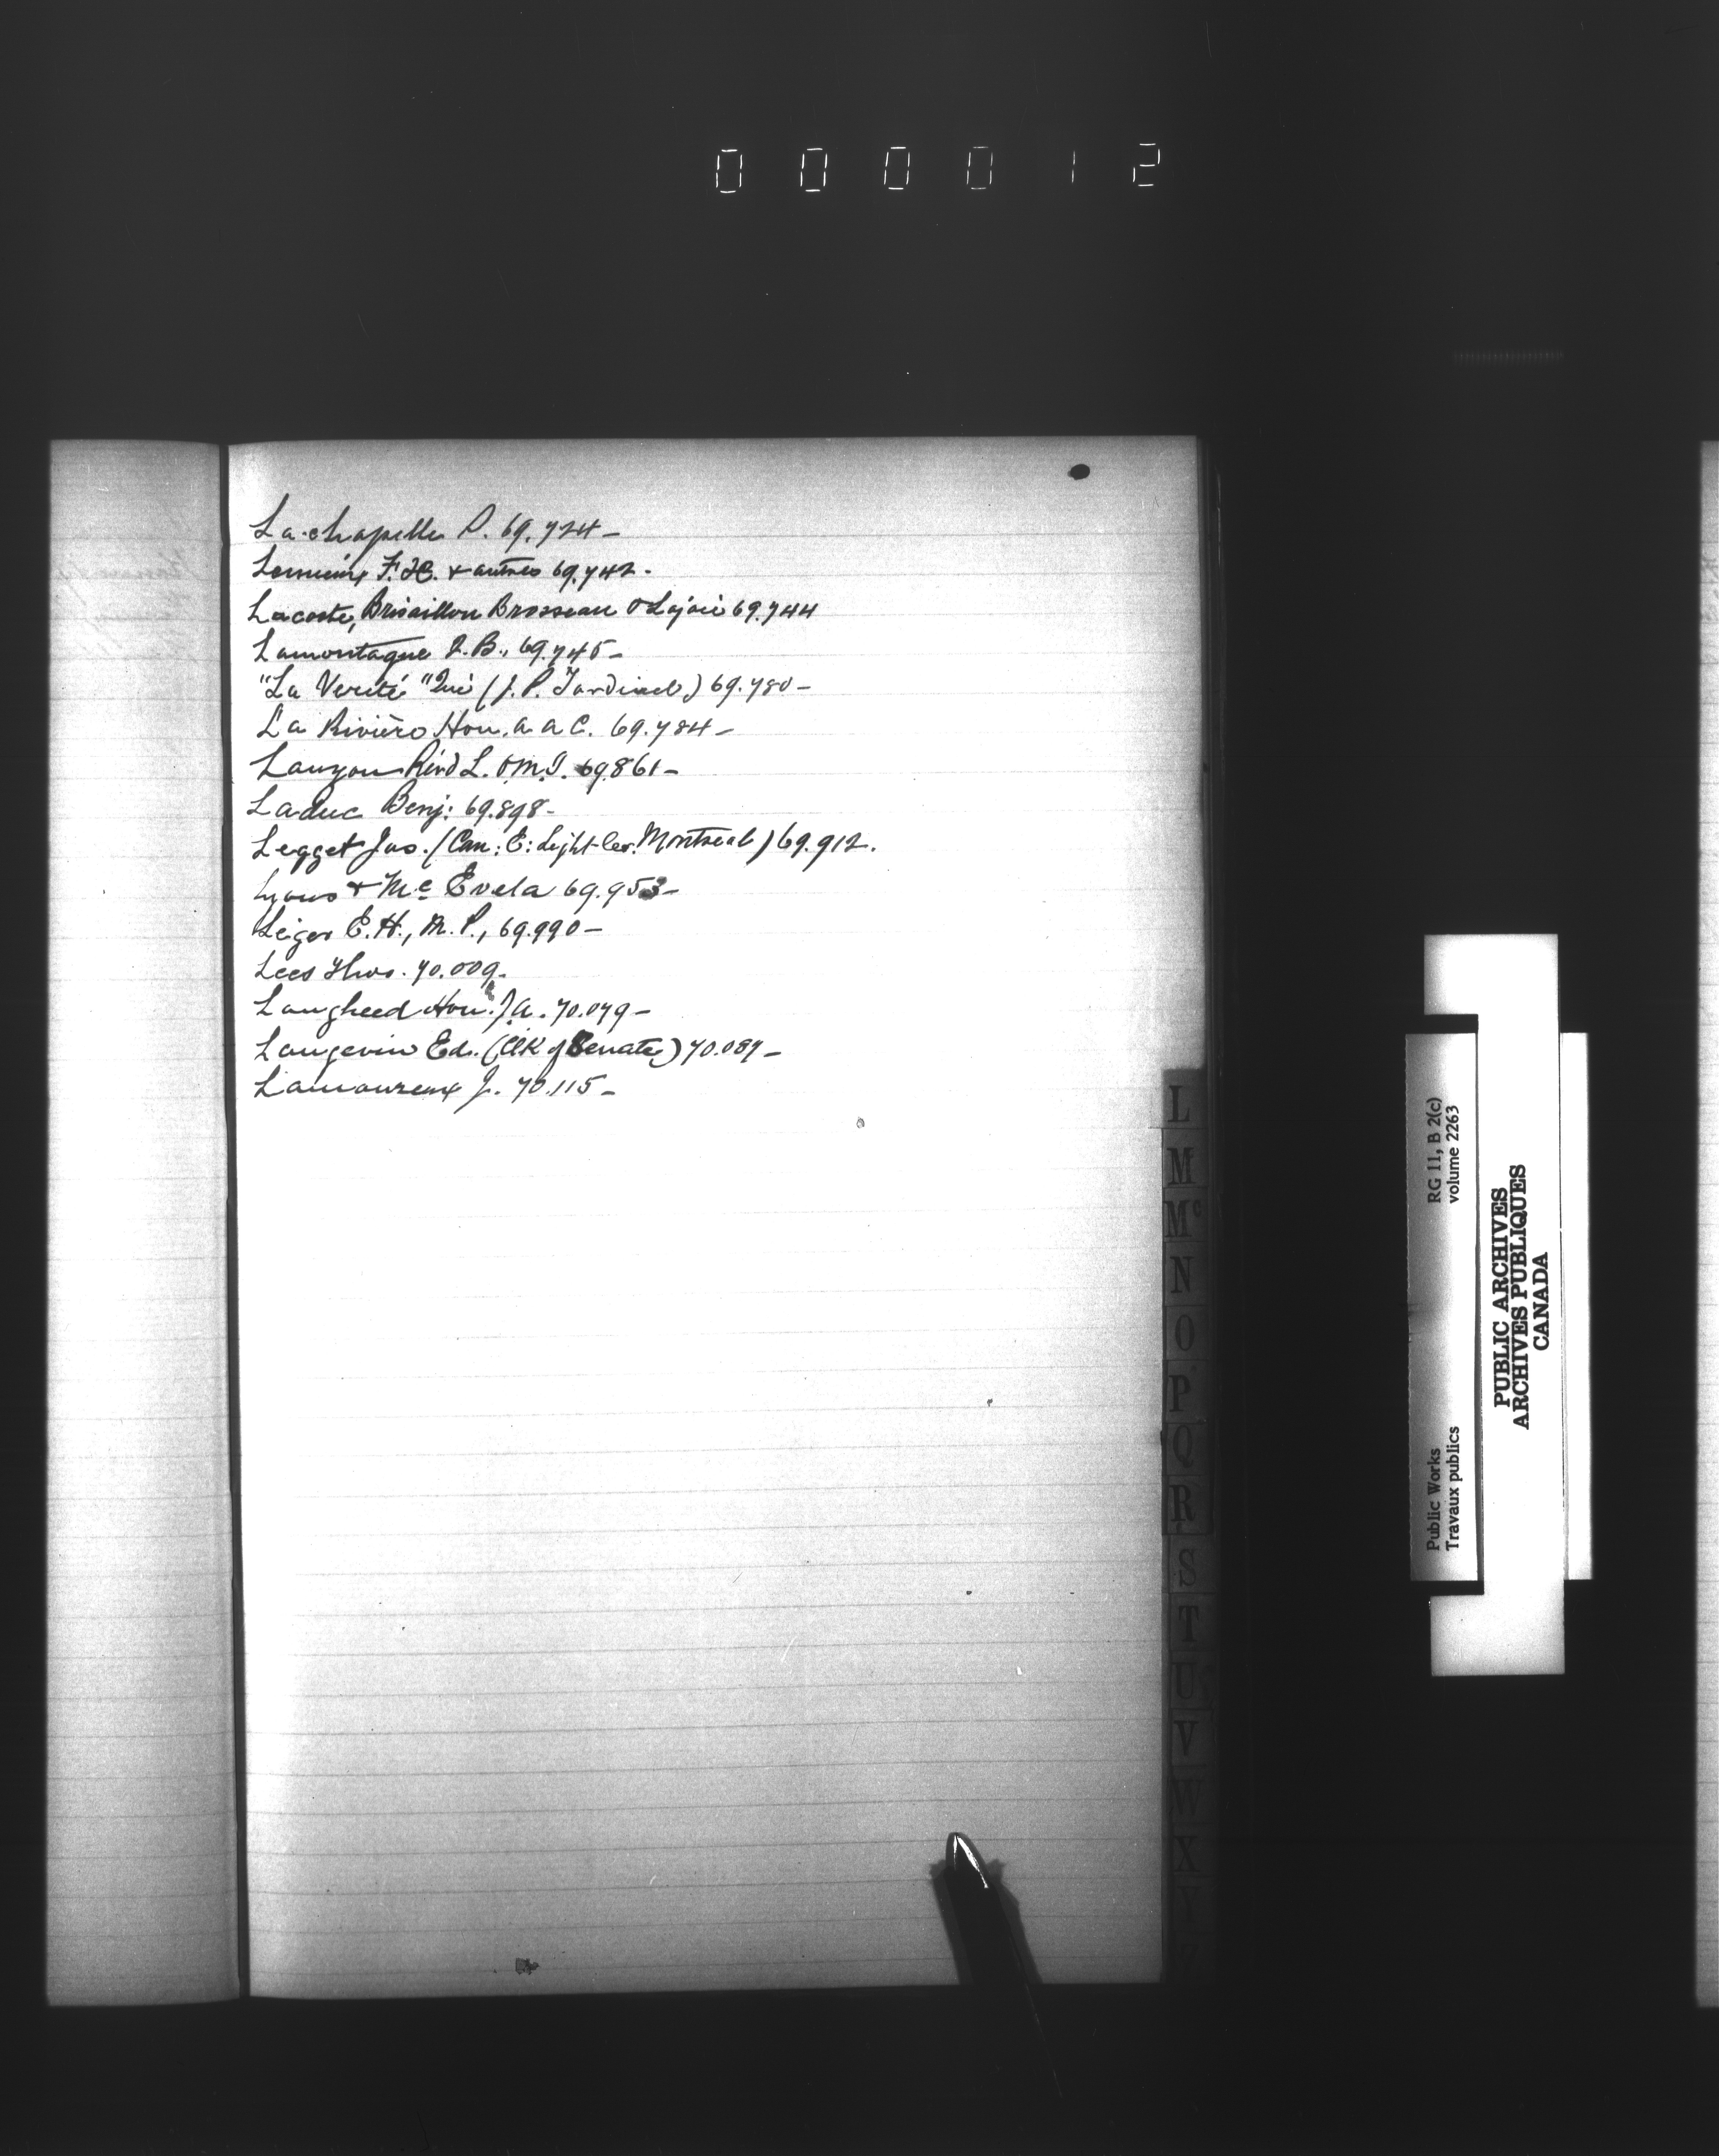 0 0 0 0 1 2
La chapelle P. 69.724 -
Lemieux F. X. & autres 69.742 -
Lacoste, Bisaillon Brosseau & Lajoie 69.744
Lamontagne J. B., 69.745 -
"La Verité" Qué (J. P. Tardivel) 69.780 -
La Rivière Hon. A A C. 69.784 -
Lauzon Révd L. O M. I. 69.861 -
Laduc Benj: 69.898 -
Legget Jas. (Can: E: Light Co. Montreal) 69.912.
Lyons & Mc Evela 69.953 -
Leger E. H., M. P., 69.990 -
Lees Thos. 70.009.
Lougheed Hon. J A. 70.079 -
Langevin Ed. (Clk of Senate) 70.087 -
Lamoureux J. 70.115 -
L
M
Mc
N
O
P
Q
R
S
T
U
V
W
X
Y
Public Works
Travaux publics
RG 11, B 2(c)
volume 2263
PUBLIC ARCHIVES
ARCHIVES PUBLIQUES
CANADA